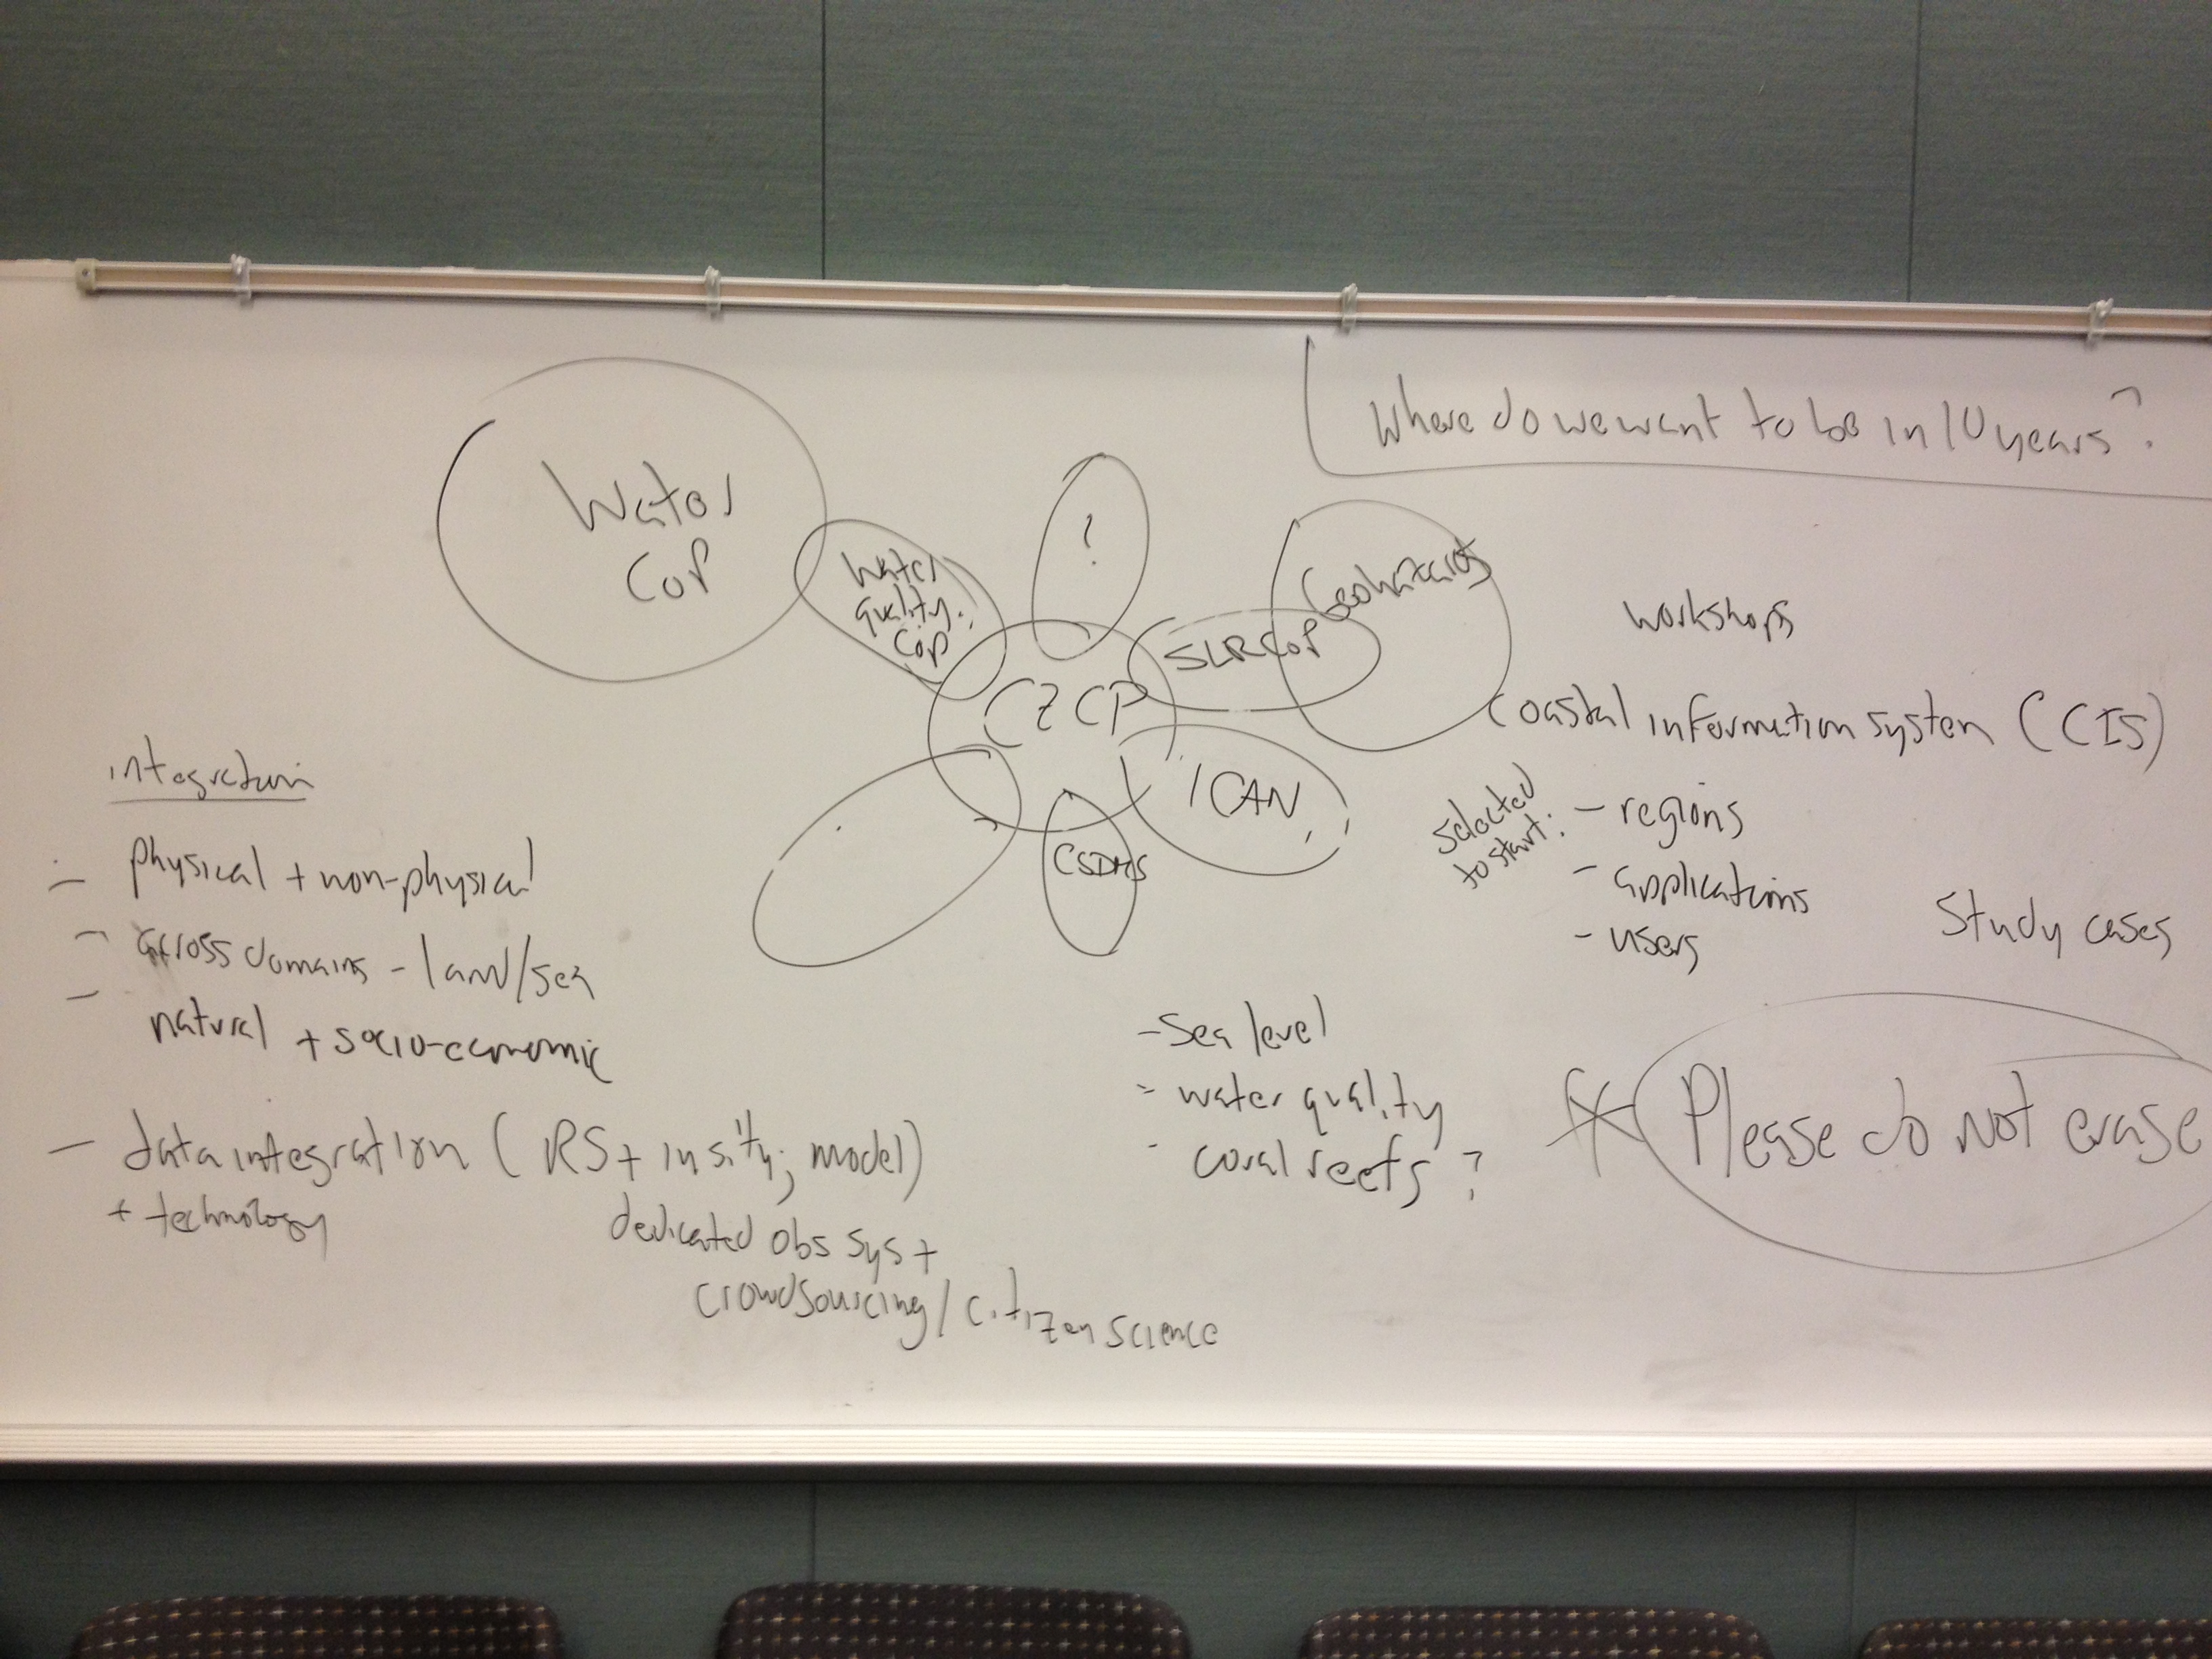 Where do we want to be in 10 years?
Water
CoP
Water
quality
CoP
?
Geohazards
SLR CoP
CZCP
ICAN
CSDMS
workshops
Coastal information system (CIS)
selected
to start:
- regions
- applications
- users
Study cases
integration
- physical + non-physical
- across domains - land/sea
- natural + socio-economic
- data integration (RS + in situ; model)
+ technology
dedicated obs sys +
crowdsourcing/citizen science
- Sea level
- water quality
- coral reefs?
* Please do not erase